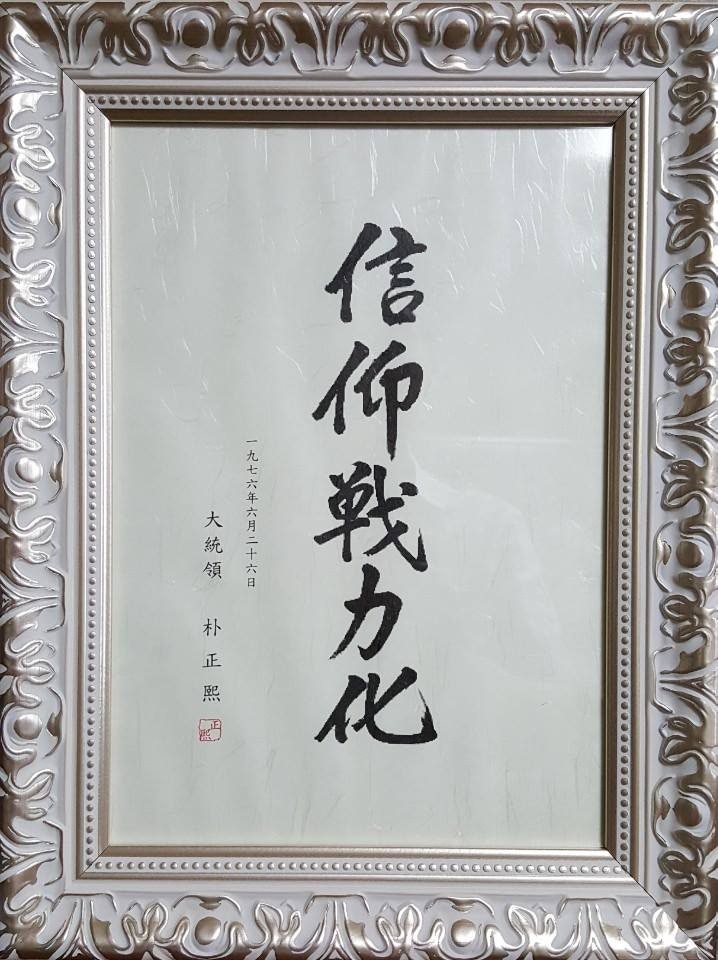 信仰戦力化
一九七六年六月二十六日
大統領 朴正熙
正熙